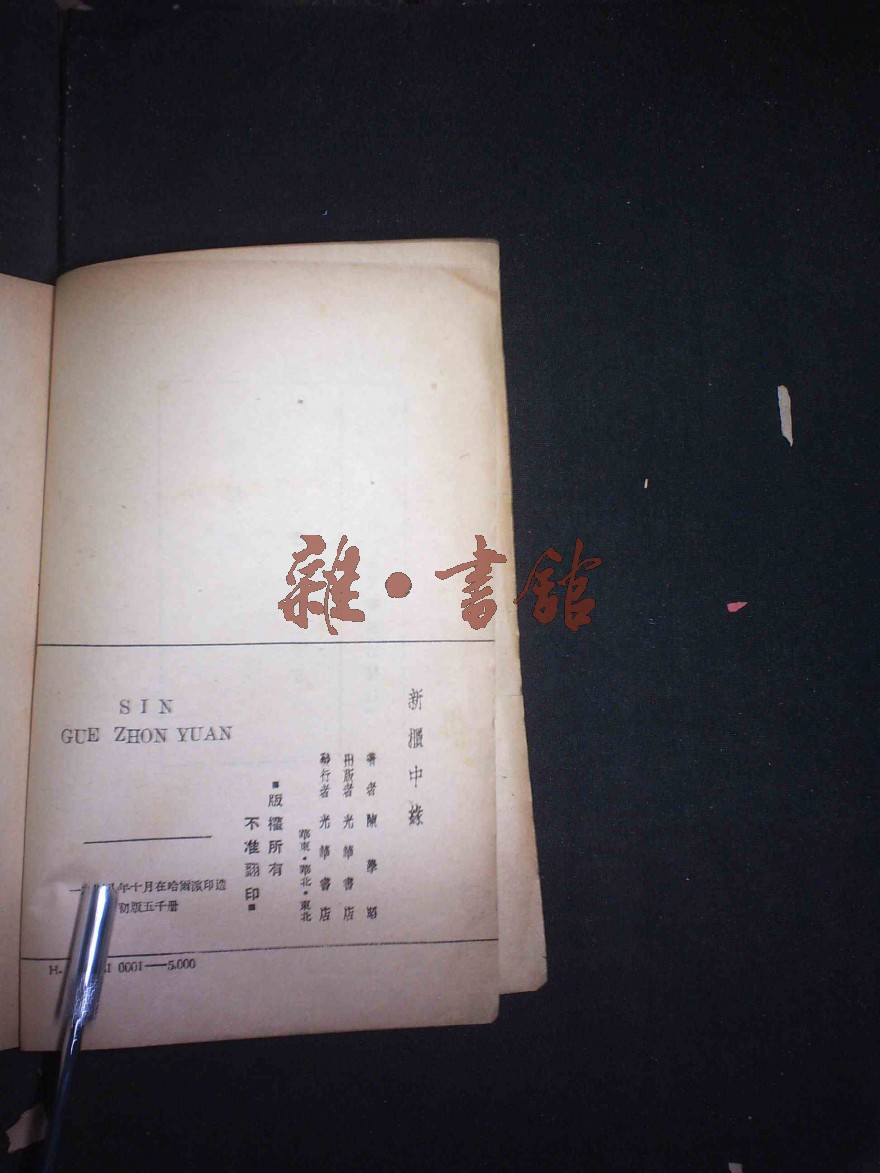 雜·書館
新櫃中緣
著者 陳學昭
出版者 光華書店
發行者 光華書店
華東·華北·東北
■版權所有
不准翻印■
SIN
GUE ZHON YUAN
年十月在哈爾濱印造
初版五千册
H. 0001—5,000